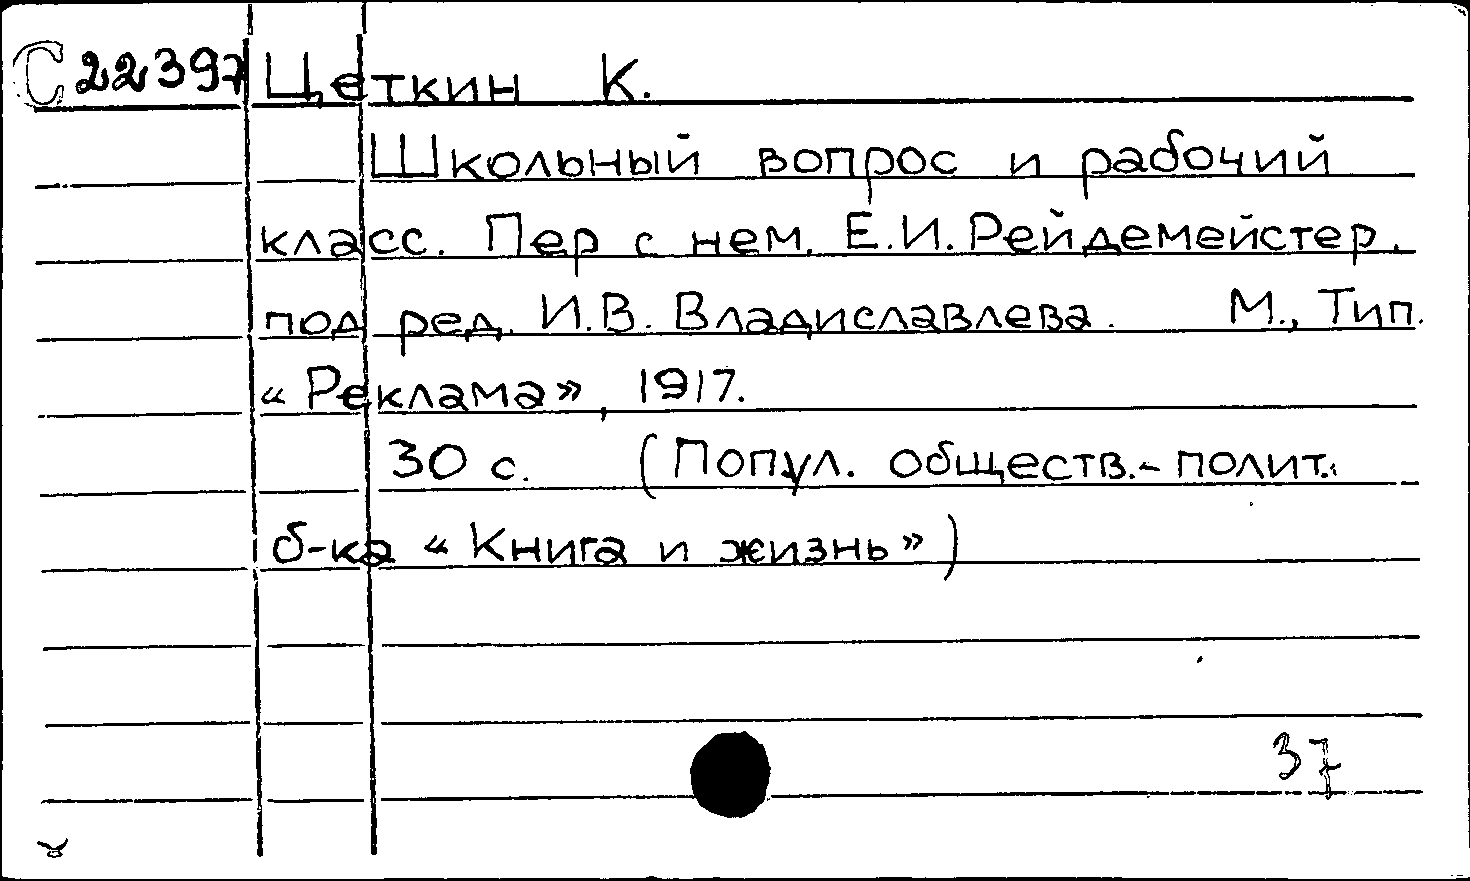 С 22397 Цеткин К.
Школьный вопрос и рабочий
класс. Пер с нем. Е.И. Рейдемейстер.
под ред. И.В. Владиславлева. М., Тип.
«Реклама», 1917.
30 с. (Попул. обществ.-полит.
б-ка «Книга и жизнь»)
37